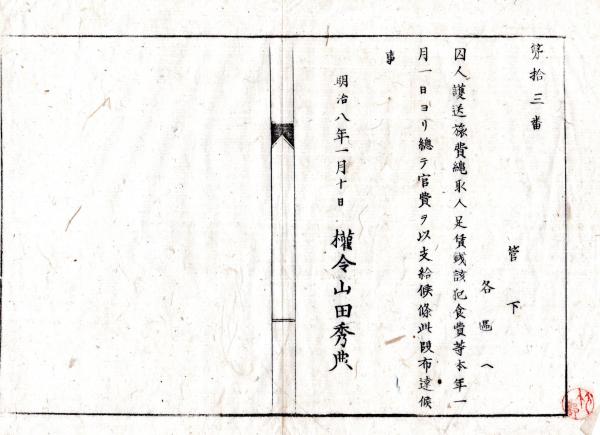 第拾三番
管下
各區へ
囚人護送旅費縄取人足賃錢該犯食費等本年一
月一日ヨリ總テ官費ヲ以支給候條此段布達候
事
明治八年一月十日
權令山田秀典